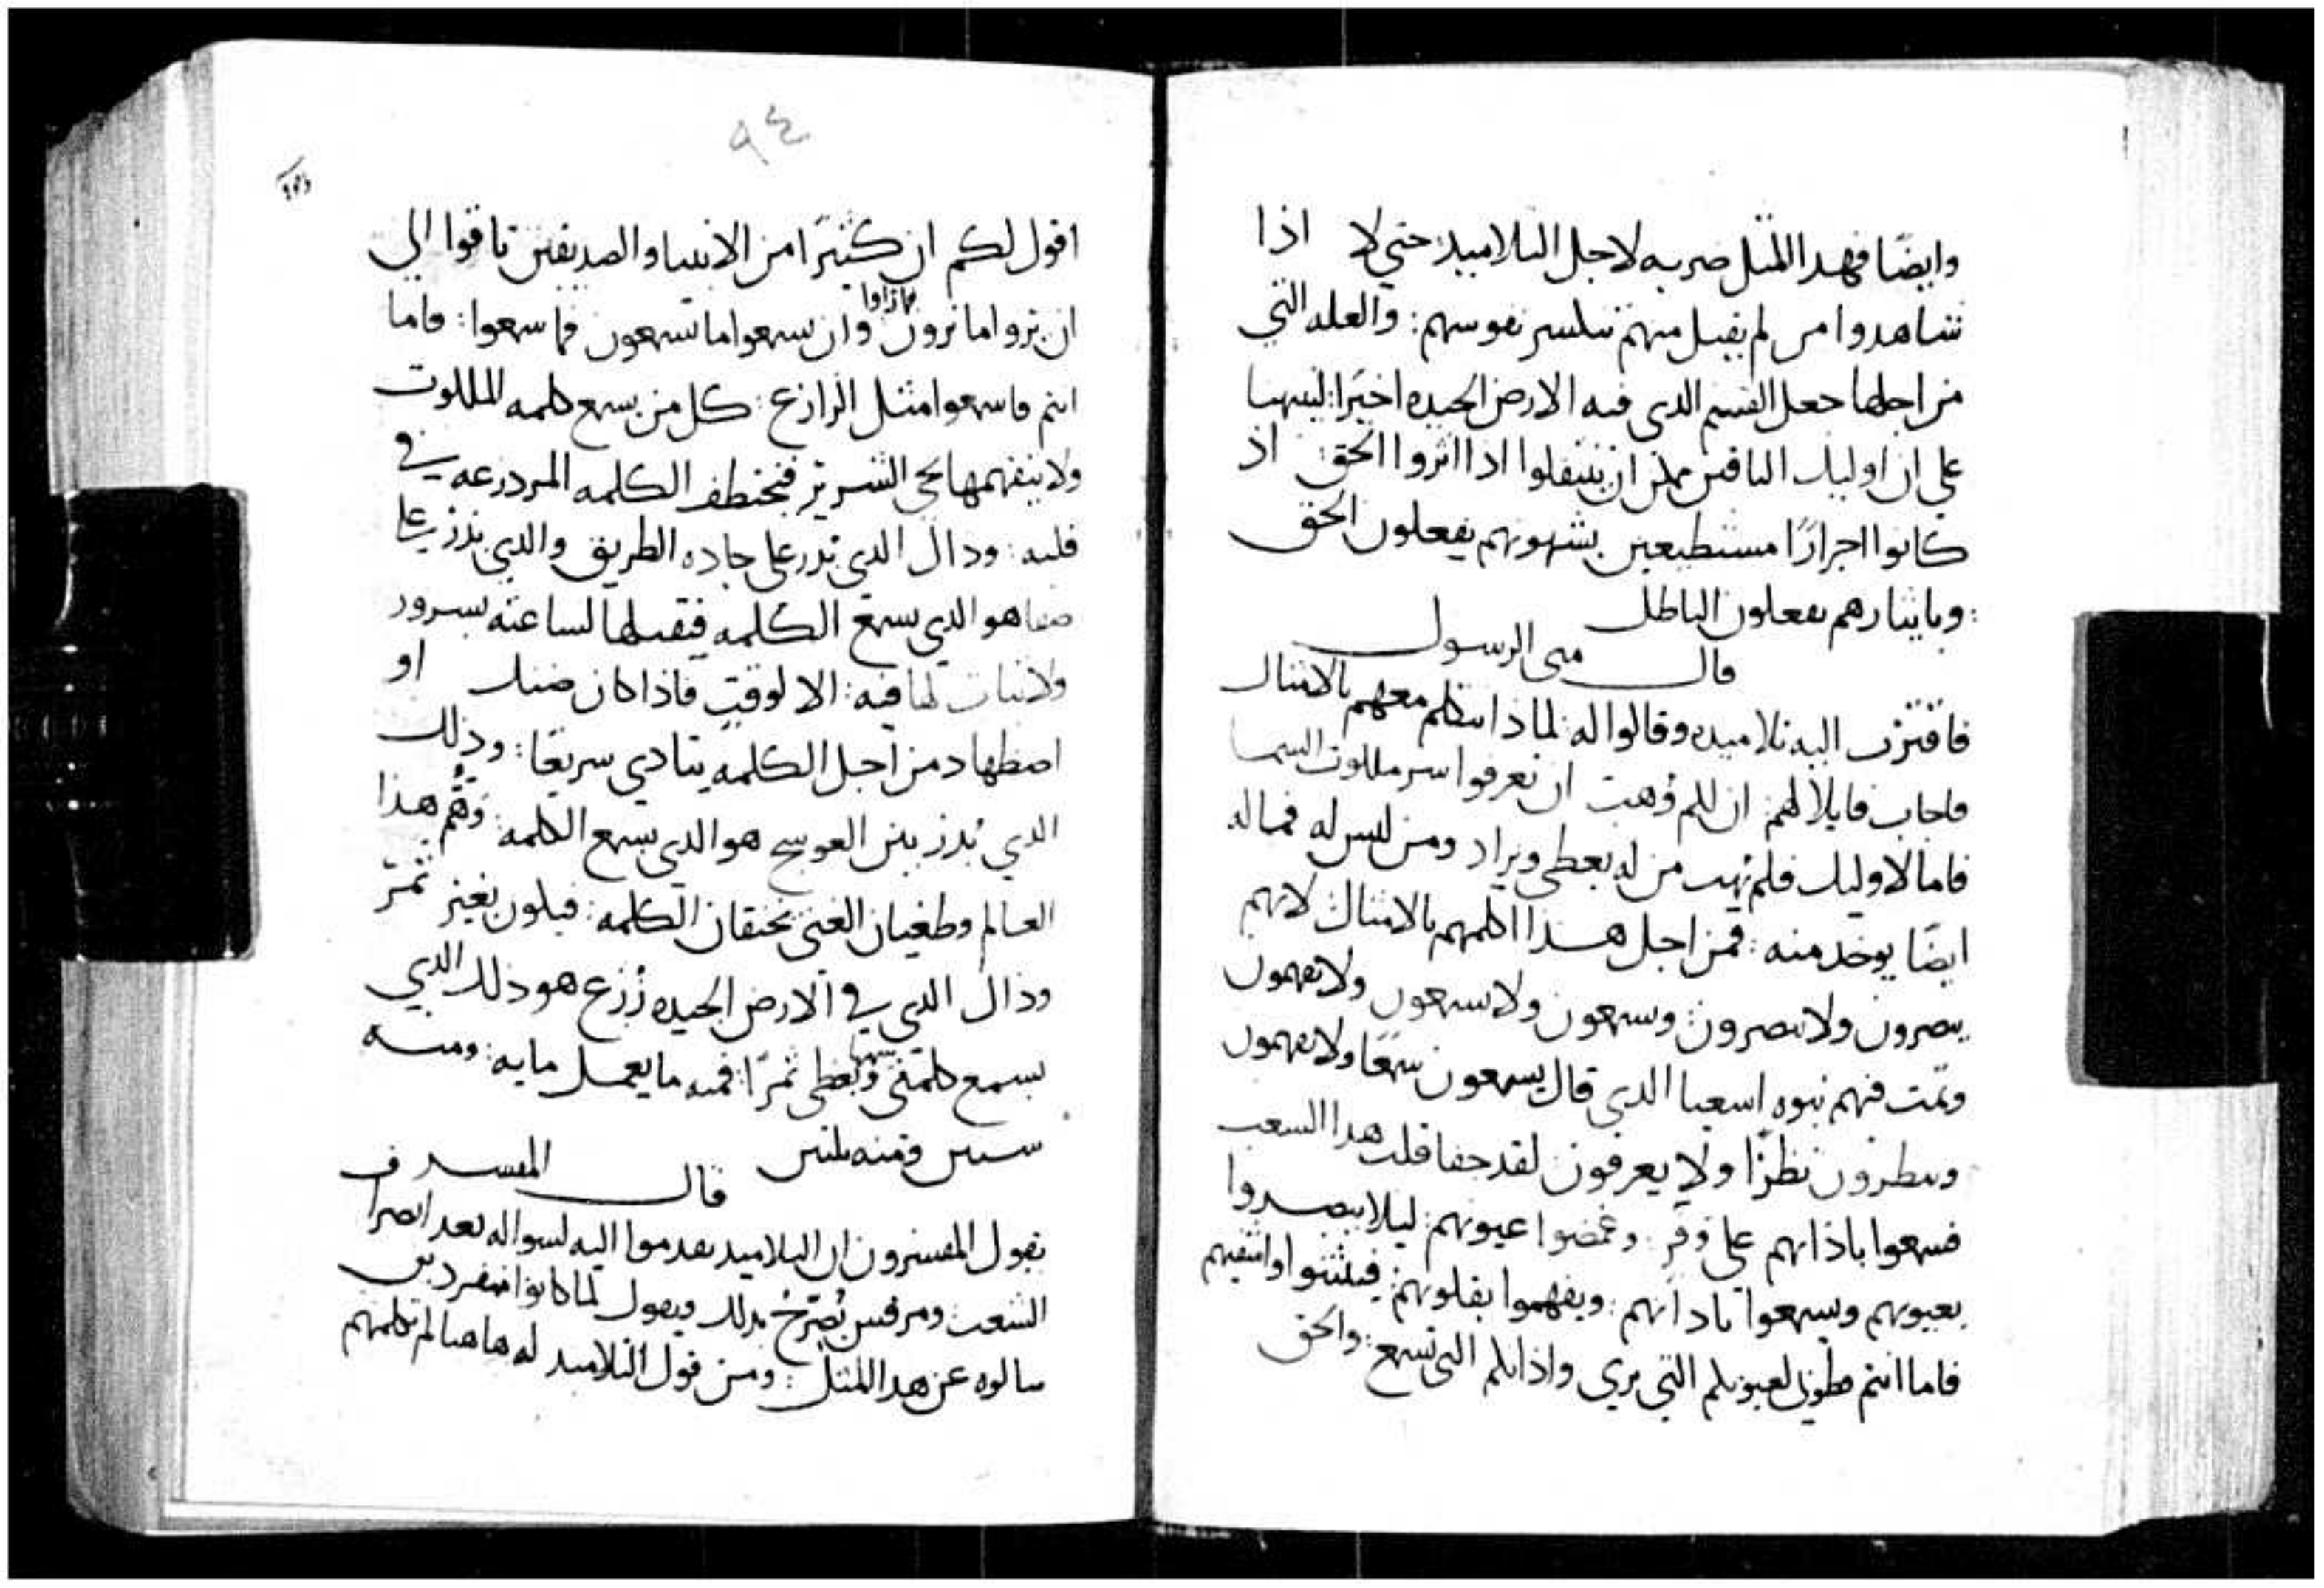 وايضًا فهدا المثل ضربه لاجل التلاميد: حتي لا اذا
شاهدوا من لم يقبل منهم تنكسر نفوسهم: والعله التي
من اجلها جعل القسم الدي فيه الارض الجيده اخيرًا: لينبهنا
علي ان اوليك الباقين يمكن ان ينتقلوا اذا اثروا الحق: اذ
كانوا احرارًا مستطيعين بشهوتهم يفعلون الحق
: وبايثارهم يفعلون الباطل
قال متى الرسول
فاقترب اليه تلاميده وقالوا له: لماذا تتكلم معهم بالامثال
فاجاب قايلا لهم ان لكم وُهبت ان تعرفوا سر ملكوت السما
فاما لاوليك فلم يُهب من له يعطى ويزاد ومن ليس له فما له
ايضًا يوخد منه: فمن اجل هذا اكلمهم بالامثال لانهم
يبصرون ولا يبصرون: ويسمعون ولا يسمعون ولا يفهمون
وتمّت فيهم نبوه اسعيا الدي قال يسمعون سمعًا ولا يفهمون
وينظرون نظرًا ولا يعرفون لقد جفا قلب هدا الشعب
فسمعوا باذانهم علي وقر: وغمضوا عيونهم: ليلا يبصروا
بعيونهم ويسمعوا باذانهم: ويفهموا بقلوبهم: فيلتثوا واشفيهم
فاما انتم فطوبي لعيونكم التي تري واذانكم التي تسمع: والحق
٩٤
اقول لكم ان كثيرًا من الانبيا والصديقين تاقوا الي
ان يروا ما ترون فما راوا وان يسمعوا ما تسمعون فما سمعوا: فاما
انتم فاسمعوا مثل الزارع: كل من يسمع كلمه الملكوت
ولا يتفهمها يجي الشرير فيختطف الكلمه المزدرعه في
قلبه: وداك الدي بدر علي جاده الطريق والدي بذر علي
صفا هو الدي يسمع الكلمه فيقبلها لساعته بسرور
ولا ثبات لها فيه: الا لوقتٍ فاذا كان ضنك او
اضطهاد من اجل الكلمه يتادي سريعًا: وذلك
الدي بُدر بين العوسج هو الدي يسمع الكلمه: وهُمّ هذا
العالم وطغيان الغنى يخنقان الكلمه: فيكون بغير ثمر
وداك الدي في الارض الجيده زُرع هو ذلك الدي
يسمع كلمتي ويفهمها ويعطي ثمرًا: فمنه ما يعمل مايه: ومنه
ستين ومنه ثلثين
قال المفسر ف
يقول المفسرون ان التلاميد تقدموا اليه لسواله بعد انصراف
الشعب ومرقس يُصَرّحُ بدلك ويقول لما كانوا منفردين
سالوه عن هدا المثل: ومن قول التلاميد له هاهنا لم تكلمهم